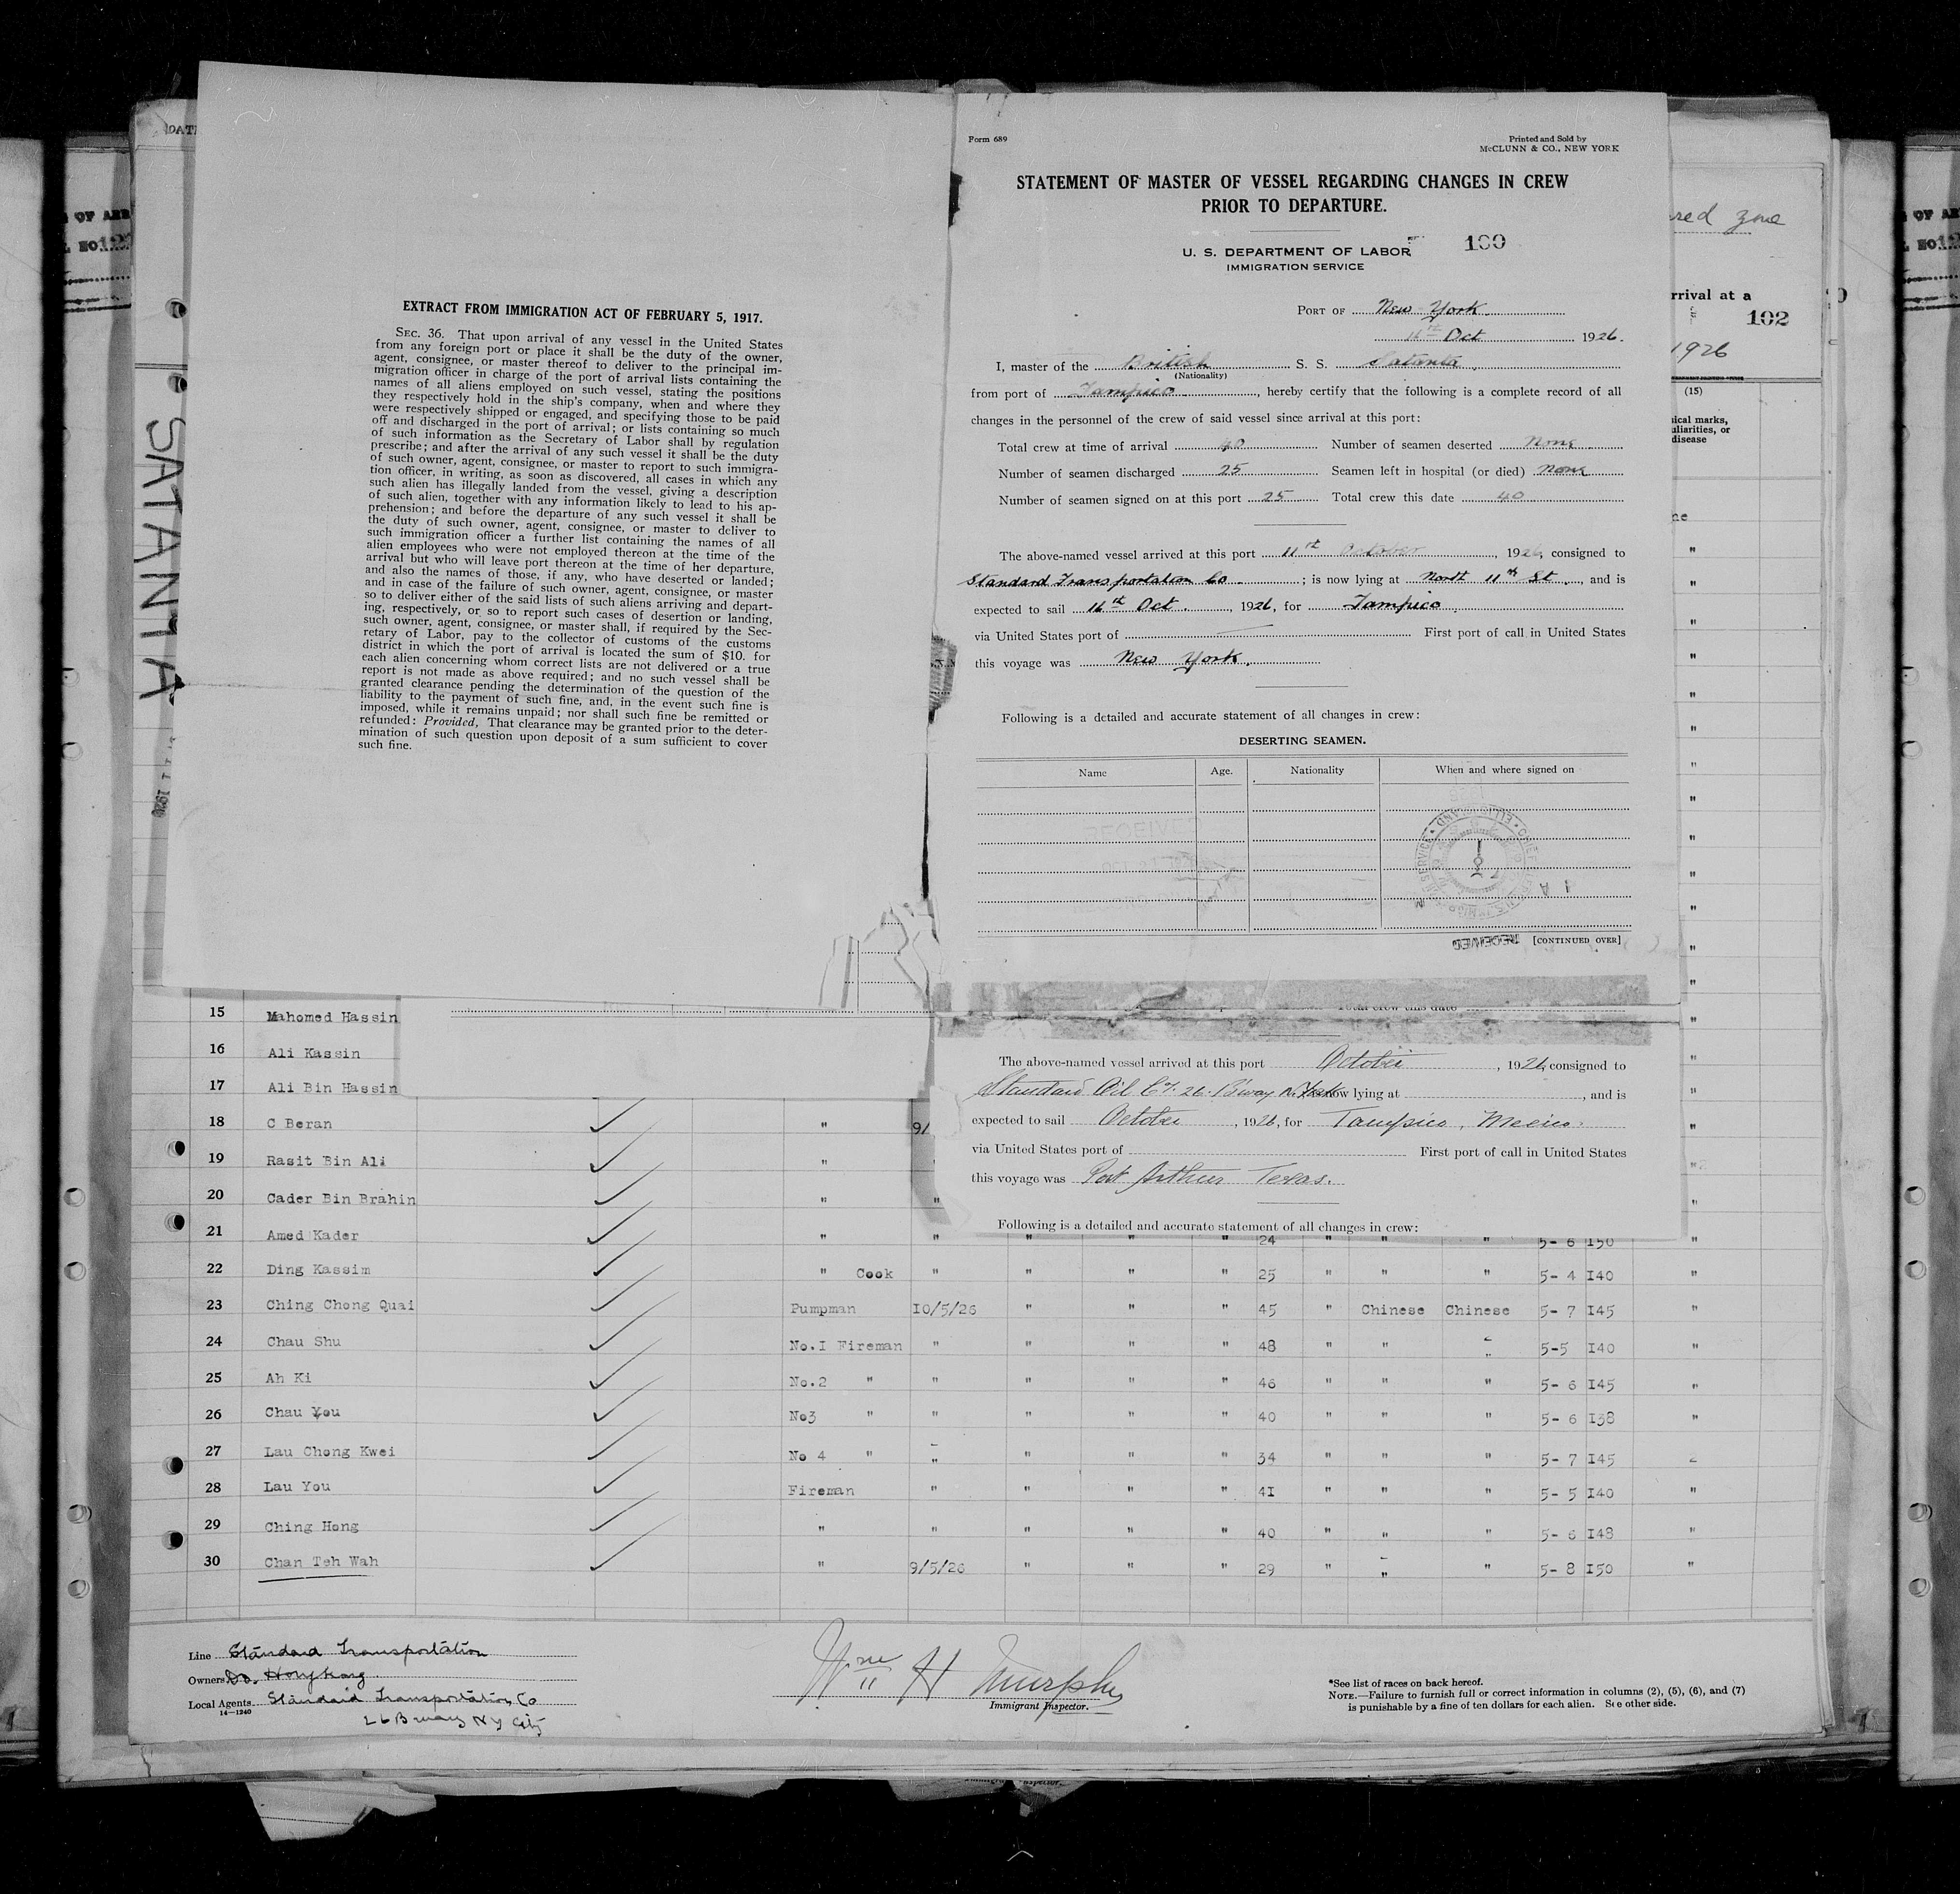 EXTRACT FROM IMMIGRATION ACT OF FEBRUARY 5, 1917.
SEC. 36. That upon arrival of any vessel in the United States
from any foreign port or place it shall be the duty of the owner,
agent, consignee, or master thereof to deliver to the principal im-
migration officer in charge of the port of arrival lists containing the
names of all aliens employed on such vessel, stating the positions
they respectively hold in the ship's company, when and where they
were respectively shipped or engaged, and specifying those to be paid
off and discharged in the port of arrival; or lists containing so much
of such information as the Secretary of Labor shall by regulation
prescribe; and after the arrival of any such vessel it shall be the duty
of such owner, agent, consignee, or master to report to such immigra-
tion officer, in writing, as soon as discovered, all cases in which any
such alien has illegally landed from the vessel, giving a description
of such alien, together with any information likely to lead to his ap-
prehension; and before the departure of any such vessel it shall be
the duty of such owner, agent, consignee, or master to deliver to
such immigration officer a further list containing the names of all
alien employees who were not employed thereon at the time of the
arrival but who will leave port thereon at the time of her departure,
and also the names of those, if any, who have deserted or landed;
and in case of the failure of such owner, agent, consignee, or master
so to deliver either of the said lists of such aliens arriving and depart-
ing, respectively, or so to report such cases of desertion or landing,
such owner, agent, consignee, or master shall, if required by the Sec-
retary of Labor, pay to the collector of customs of the customs
district in which the port of arrival is located the sum of $10. for
each alien concerning whom correct lists are not delivered or a true
report is not made as above required; and no such vessel shall be
granted clearance pending the determination of the question of the
liability to the payment of such fine, and, in the event such fine is
imposed, while it remains unpaid; nor shall such fine be remitted or
refunded: Provided, That clearance may be granted prior to the deter-
mination of such question upon deposit of a sum sufficient to cover
such fine.
SATANTA
Form 689
Printed and Sold by
McCLUNN & CO., NEW YORK
STATEMENT OF MASTER OF VESSEL REGARDING CHANGES IN CREW
PRIOR TO DEPARTURE.
U. S. DEPARTMENT OF LABOR 100
IMMIGRATION SERVICE
PORT OF New York
16th Oct 1926.
I, master of the British S. S. Satanta
(Nationality)
from port of Tampico, hereby certify that the following is a complete record of all
changes in the personnel of the crew of said vessel since arrival at this port:
Total crew at time of arrival 40 Number of seamen deserted None
Number of seamen discharged 25 Seamen left in hospital (or died) None
Number of seamen signed on at this port 25 Total crew this date 40
The above-named vessel arrived at this port 11th October, 1926, consigned to
Standard Transportation Co. ; is now lying at North 11th St., and is
expected to sail 16th Oct., 1926, for Tampico
via United States port of First port of call in United States
this voyage was New York.
Following is a detailed and accurate statement of all changes in crew:
DESERTING SEAMEN.
Name Age. Nationality When and where signed on
RECEIVED
[CONTINUED OVER]
Total crew this date
The above-named vessel arrived at this port October, 1926, consigned to
Standard Oil Co. 26 B'way N. York now lying at , and is
expected to sail October, 1926, for Tampico, Mexico.
via United States port of First port of call in United States
this voyage was Port Arthur Texas.
Following is a detailed and accurate statement of all changes in crew:
red zone
rrival at a
102
1926
(15)
ical marks,
uliarities, or
disease
15 Mahomed Hassin
16 Ali Kassin
17 Ali Bin Hassin
18 C Beran " 9/
19 Rasit Bin Ali "
20 Cader Bin Brahin " "
21 Amed Kader " " " " " 24 " " " 5- 6 I50 "
22 Ding Kassim " Cook " " " " 25 " " " 5- 4 I40 "
23 Ching Chong Quai Pumpman I0/5/26 " " " 45 " Chinese Chinese 5- 7 I45 "
24 Chau Shu No.I Fireman " " " " 48 " " " 5-5 I40 "
25 Ah Ki No.2 " " " " " 46 " " " 5- 6 I45 "
26 Chau You No3 " " " " " 40 " " " 5- 6 I38 "
27 Lau Chong Kwei No 4 " " " " " 34 " " " 5- 7 I45
28 Lau You Fireman " " " " 41 " " " 5- 5 I40 "
29 Ching Hong " " " " " 40 " " " 5- 6 I48 "
30 Chan Teh Wah " 9/5/26 " " " 29 " " " 5- 8 I50 "
Line Standard Transportation
Owners Do. Hong Kong
Local Agents Standard Transportation Co
14—1240
26 Bway NY City
Wm H Murphy
Immigrant Inspector.
*See list of races on back hereof.
NOTE.—Failure to furnish full or correct information in columns (2), (5), (6), and (7)
is punishable by a fine of ten dollars for each alien. See other side.